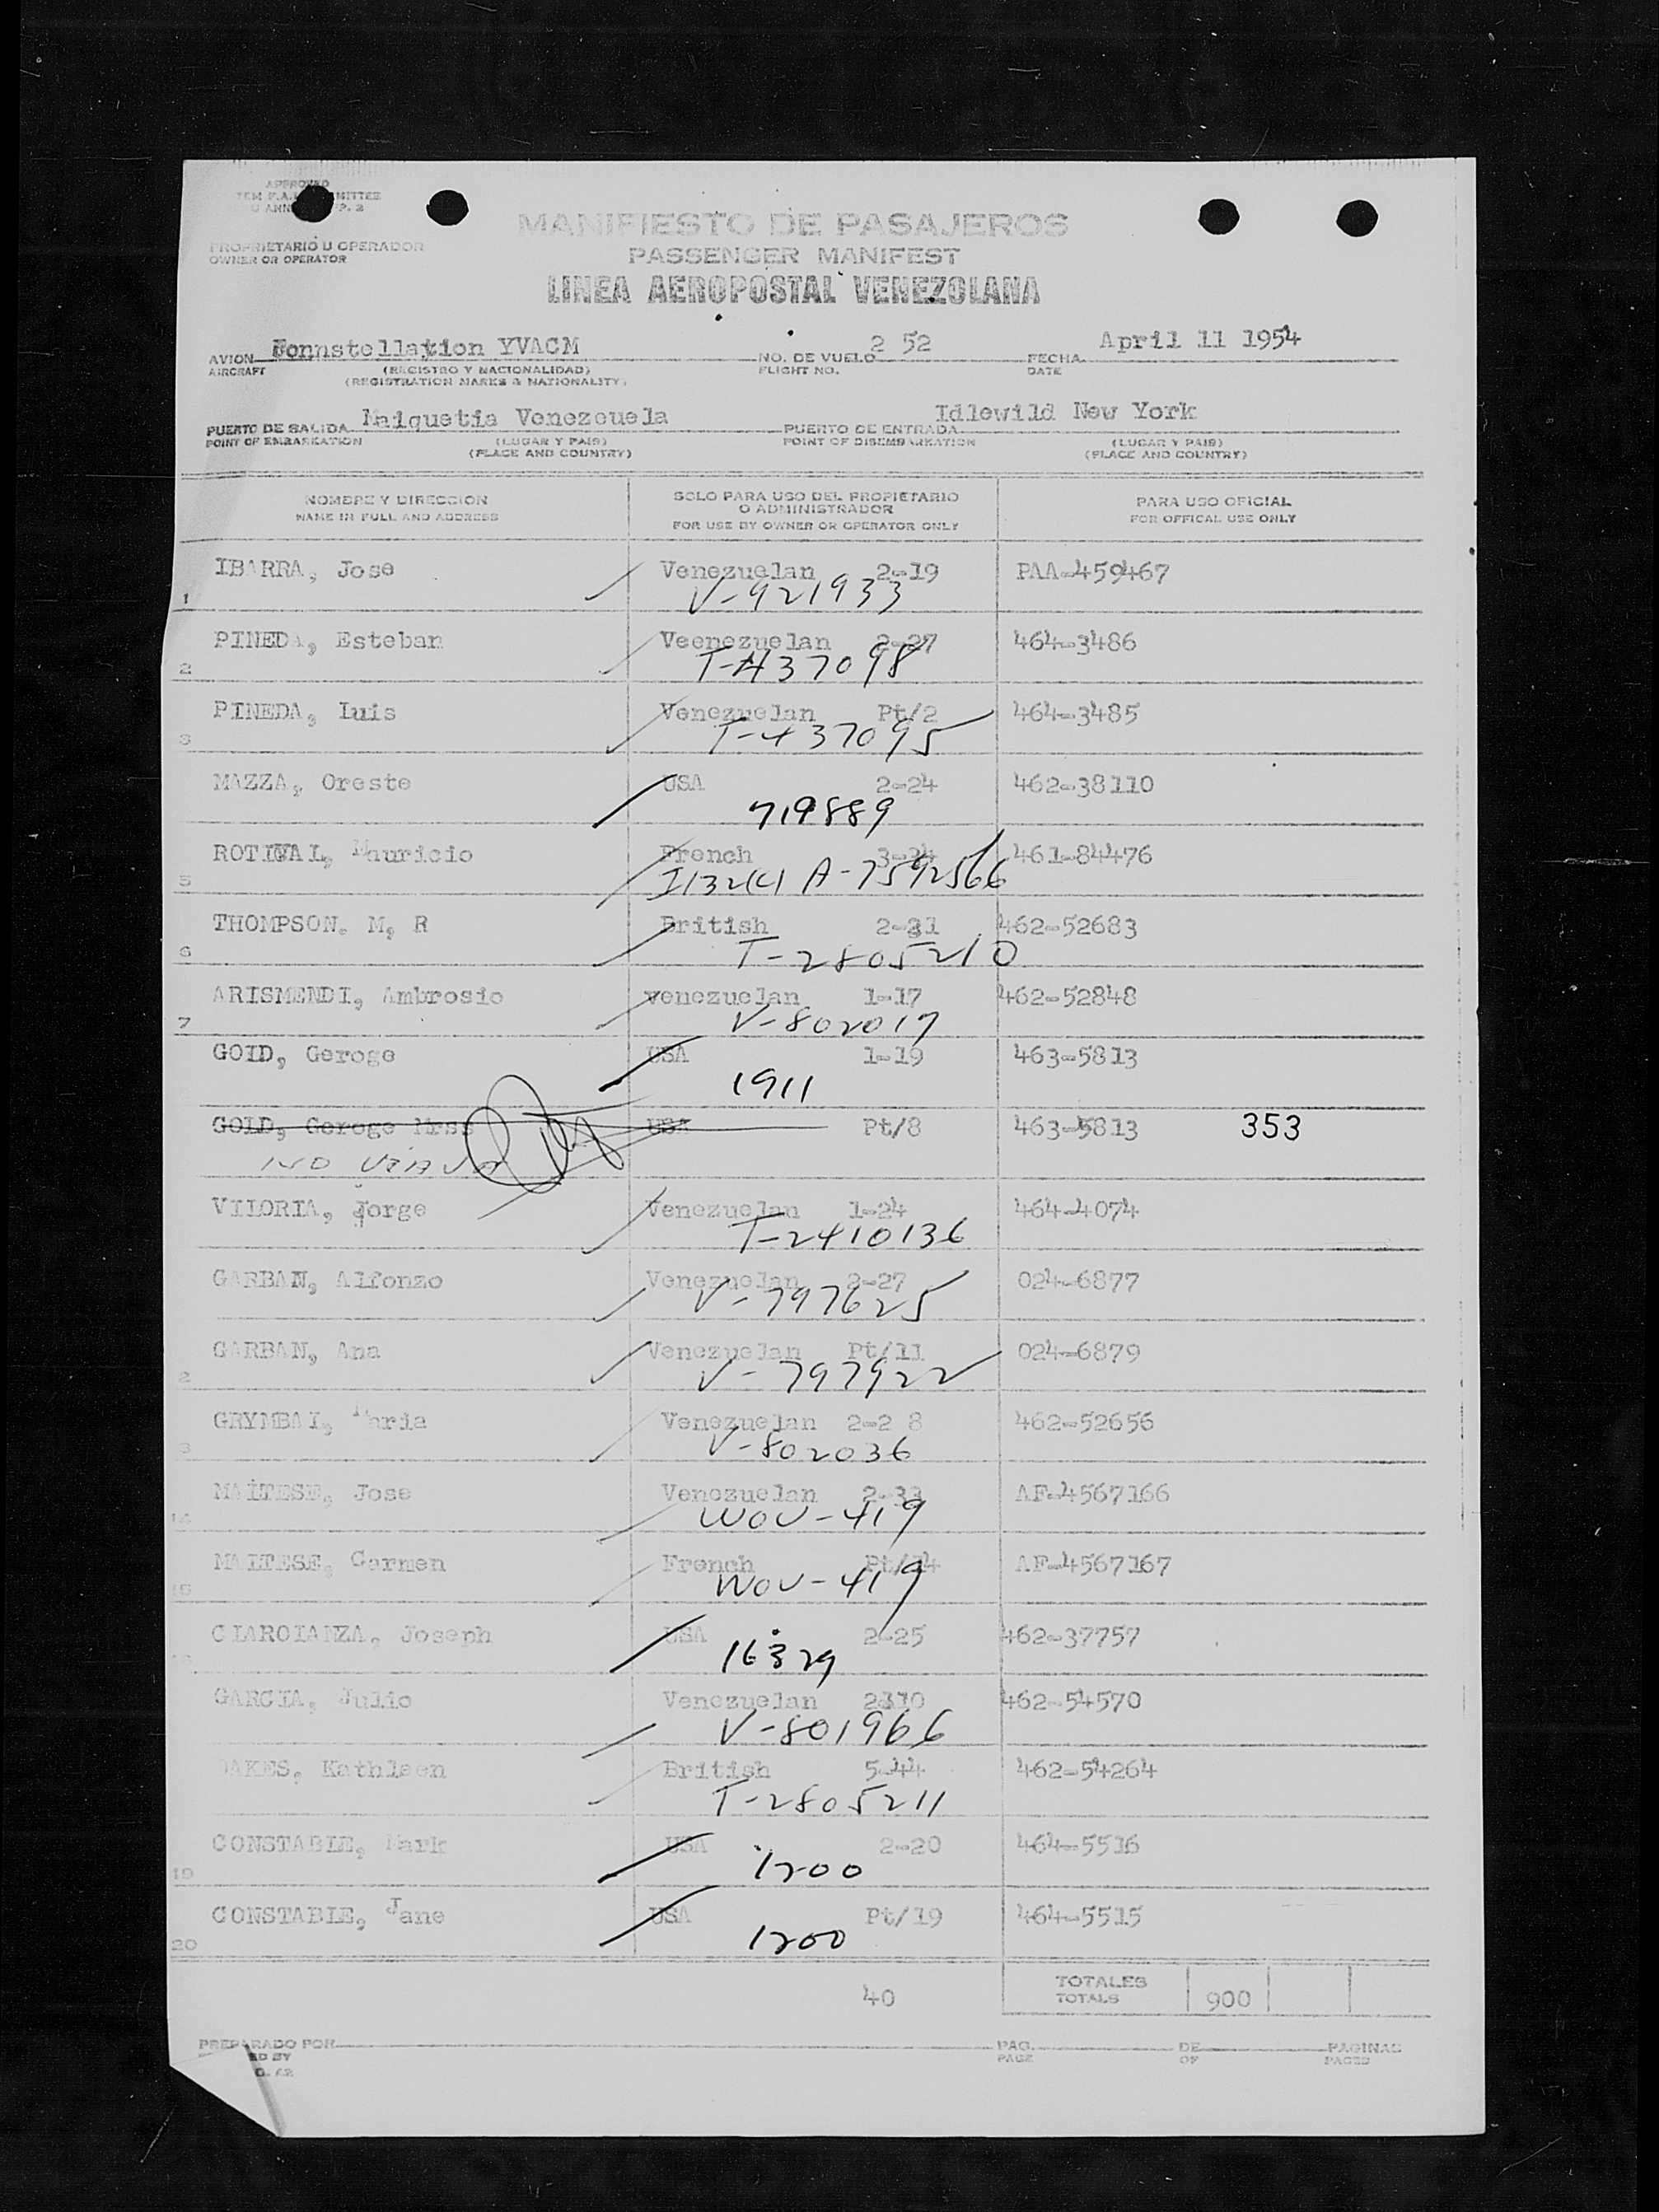 APPROVED
P. 2
MANIFIESTO DE PASAJEROS
PROPRIETARIO U OPERADOR
OWNER OR OPERATOR
PASSENGER MANIFEST
LINEA AEROPOSTAL VENEZOLANA
AVION Connstellation YVACM NO. DE VUELO 2 52 FECHA April 11 1954
AIRCRAFT (REGISTRO Y NACIONALIDAD) FLIGHT NO. DATE
(REGISTRATION MARKS & NATIONALITY)
PUERTO DE SALIDA Maiquetia Venezouela PUERTO DE ENTRADA Idlewild New York
POINT OF EMBARKATION (LUGAR Y PAIS) POINT OF DISEMBARKATION (LUGAR Y PAIS)
(PLACE AND COUNTRY) (PLACE AND COUNTRY)
NOMBRE Y DIRECCION SOLO PARA USO DEL PROPIETARIO O ADMINISTRADOR PARA USO OFICIAL
NAME IN FULL AND ADDRESS FOR USE BY OWNER OR OPERATOR ONLY FOR OFFICAL USE ONLY
IBARRA, Jose Venezuelan 2-19 PAA-459467
1 V-921933
PINEDA, Esteban Veenezuelan 2-27 464-3486
2 T-437098
PINEDA, Luis Venezuelan Pt/2 464-3485
3 T-437095
MAZZA, Oreste USA 2-24 462-38110
719889
ROTIVAL, Mauricio French 3-24 461-84476
5 I132(c) A-7592566
THOMPSON. M, R British 2-31 462-52683
6 T-2805210
ARISMENDI, Ambrosio venezuelan 1-17 462-52848
7 V-802017
GOLD, Geroge USA 1-19 463-5813
1911
GOLD, Geroge Mrss USA Pt/8 463-5813 353
NO VIAJA
VILORIA, Jorge Venezuelan 1-24 464-4074
T-2410136
GARBAN, Alfonzo Venezuelan 2-27 024-6877
V-797625
GARBAN, Ana Venezuelan Pt/11 024-6879
2 V-797922
GRYMBAL, Maria Venezuelan 2-2 8 462-52656
3 V-802036
MALTESE, Jose Venezuelan 2-33 AF-4567166
14 WOV-419
MALTESE, Carmen French Pt/14 AF-4567167
15 WOV-419
CIARCIANZA, Joseph USA 2-25 462-37757
16329
GARCIA, Julio Venezuelan 462-54570
V-801966
OAKES, Kathleen British 5-44 462-54264
T-2805211
CONSTABLE, Mark USA 2-20 464-5516
19 1200
CONSTABLE, Jane USA Pt/19 464-5515
20 1200
40 TOTALES 900
TOTALS
PREPARADO POR PAG. DE PAGINAS
ED BY PAGE OF PAGES